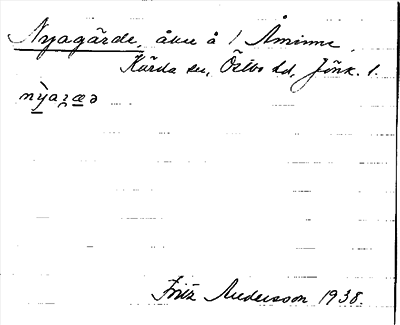 Nyagärde, åker å 1 Åminne
Kärda sn, Östbo hd, Jönk. l.
nỳaʒæə
Fritz Andersson 1938.